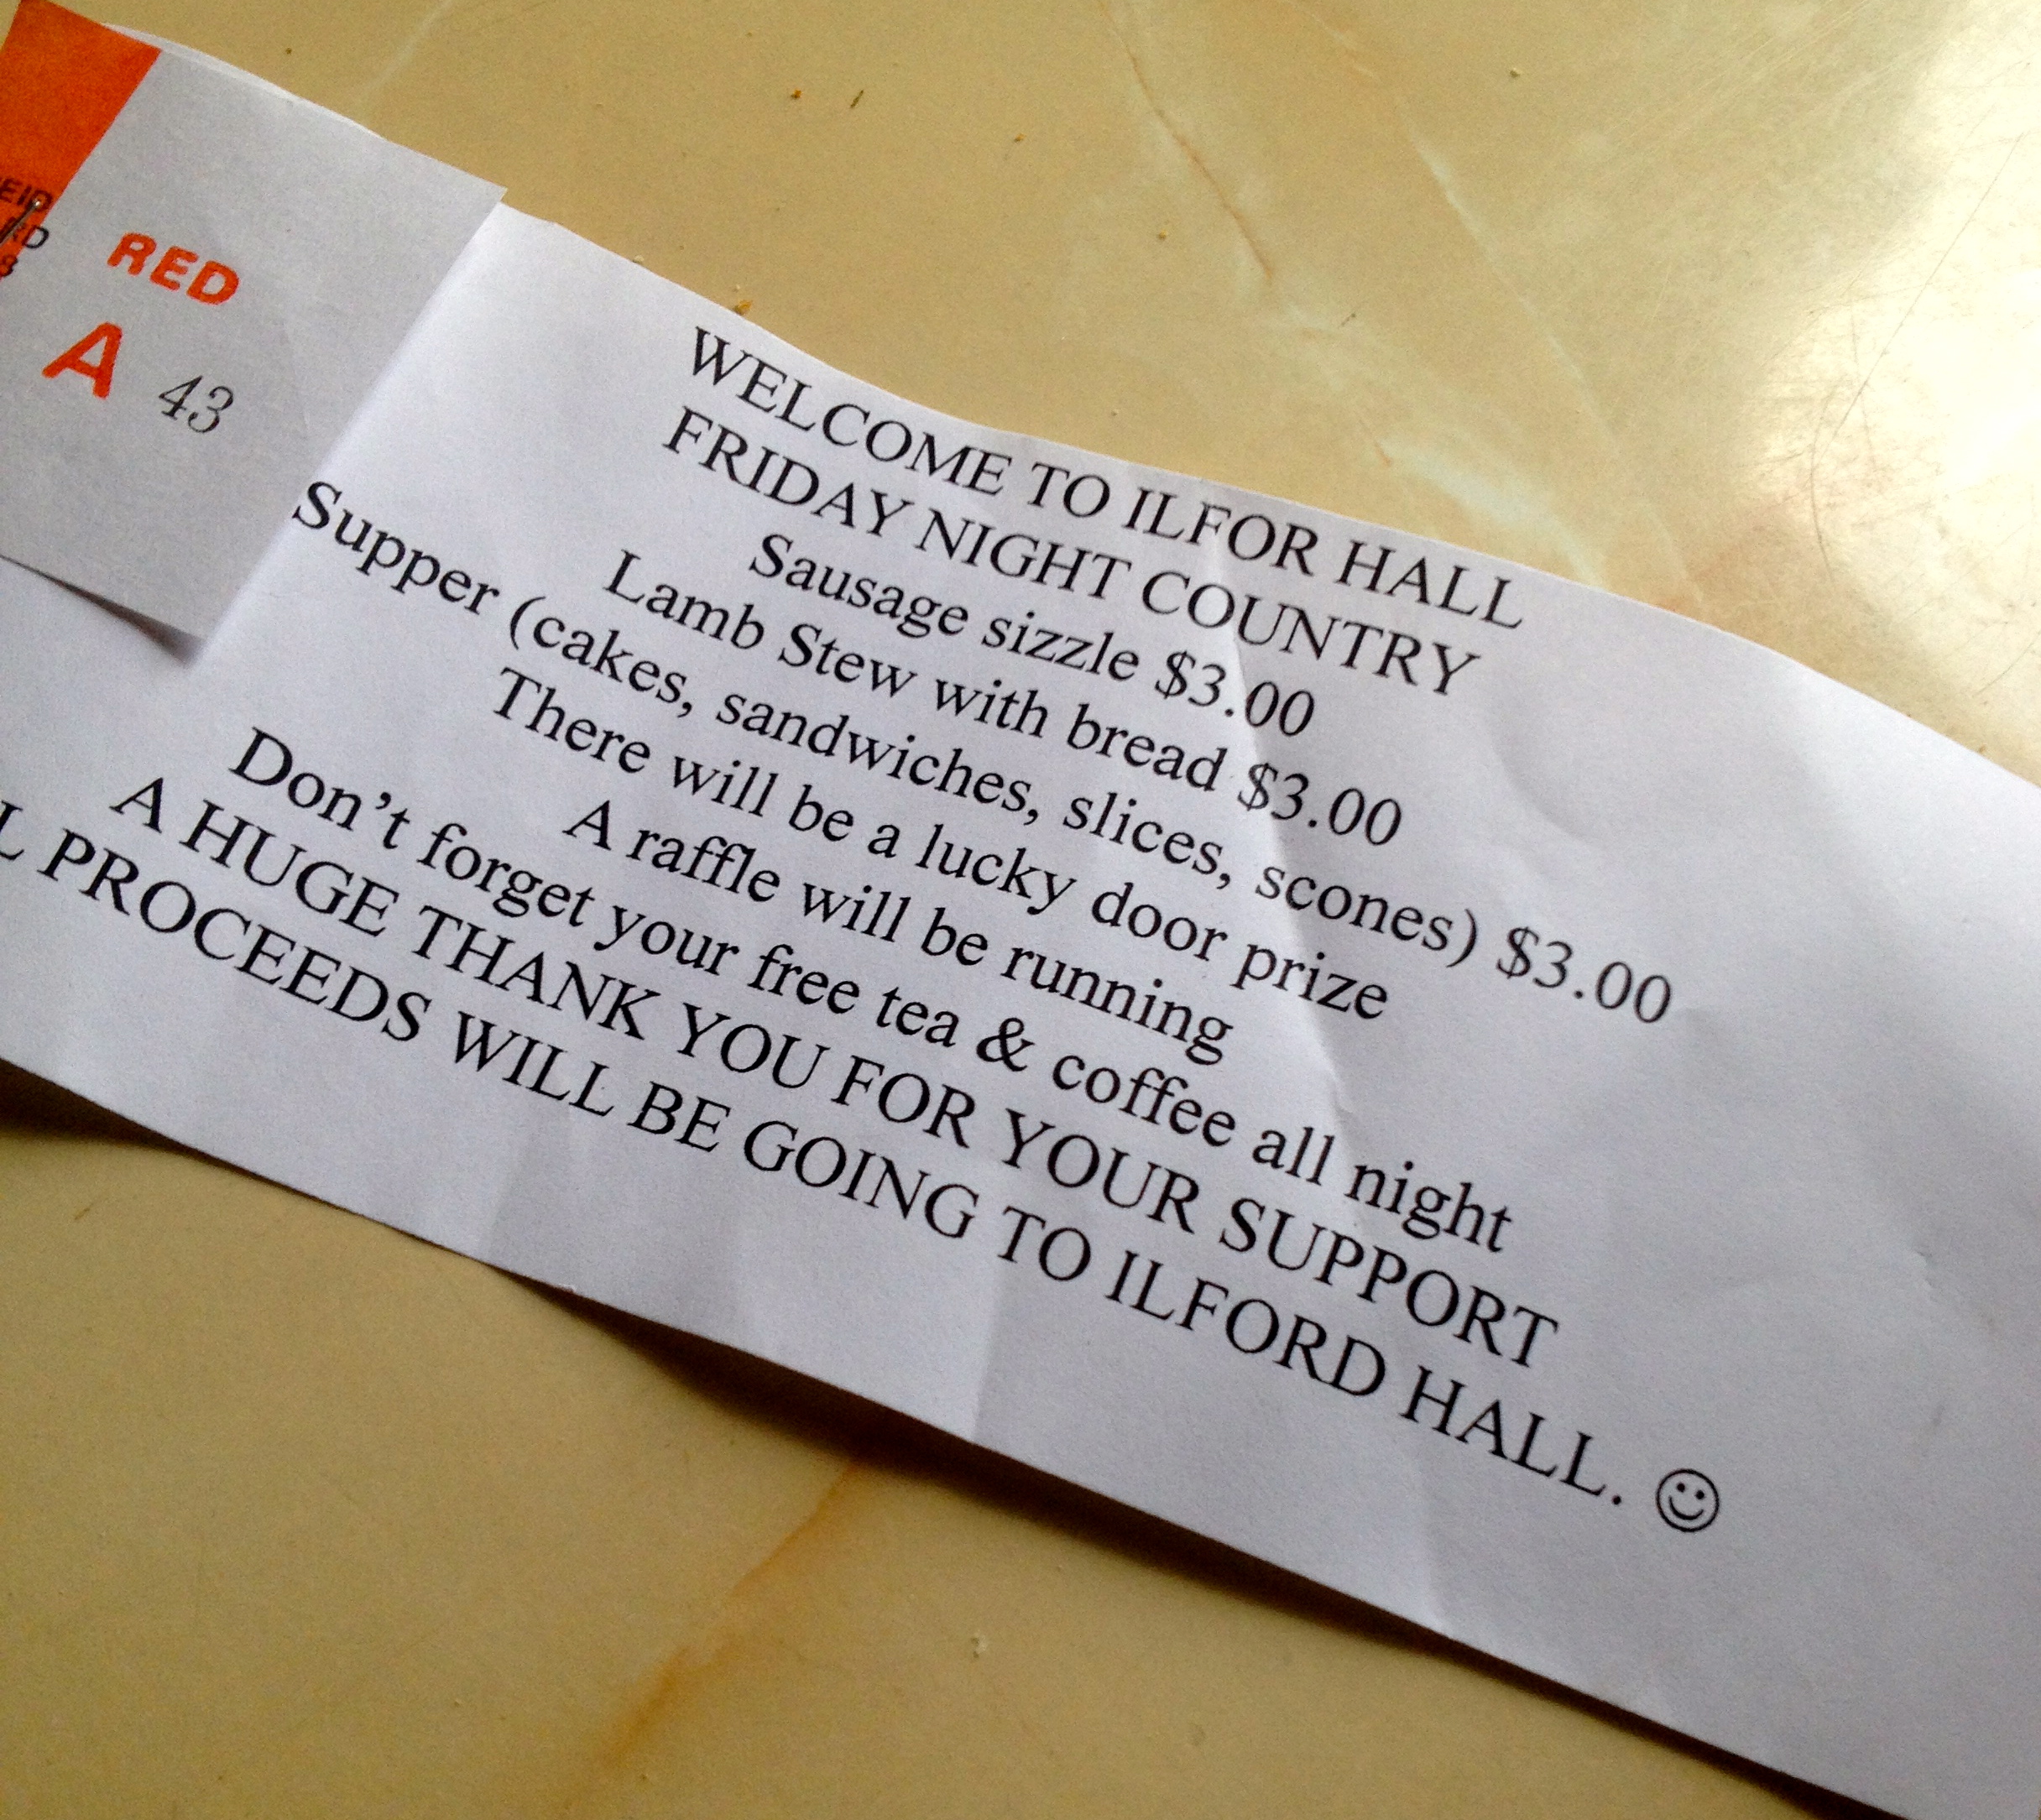 RED
A 43
WELCOME TO ILFOR HALL
FRIDAY NIGHT COUNTRY
Sausage sizzle $3.00
Lamb Stew with bread $3.00
Supper (cakes, sandwiches, slices, scones) $3.00
There will be a lucky door prize
A raffle will be running
Don't forget your free tea & coffee all night
A HUGE THANK YOU FOR YOUR SUPPORT
L PROCEEDS WILL BE GOING TO ILFORD HALL. ☺